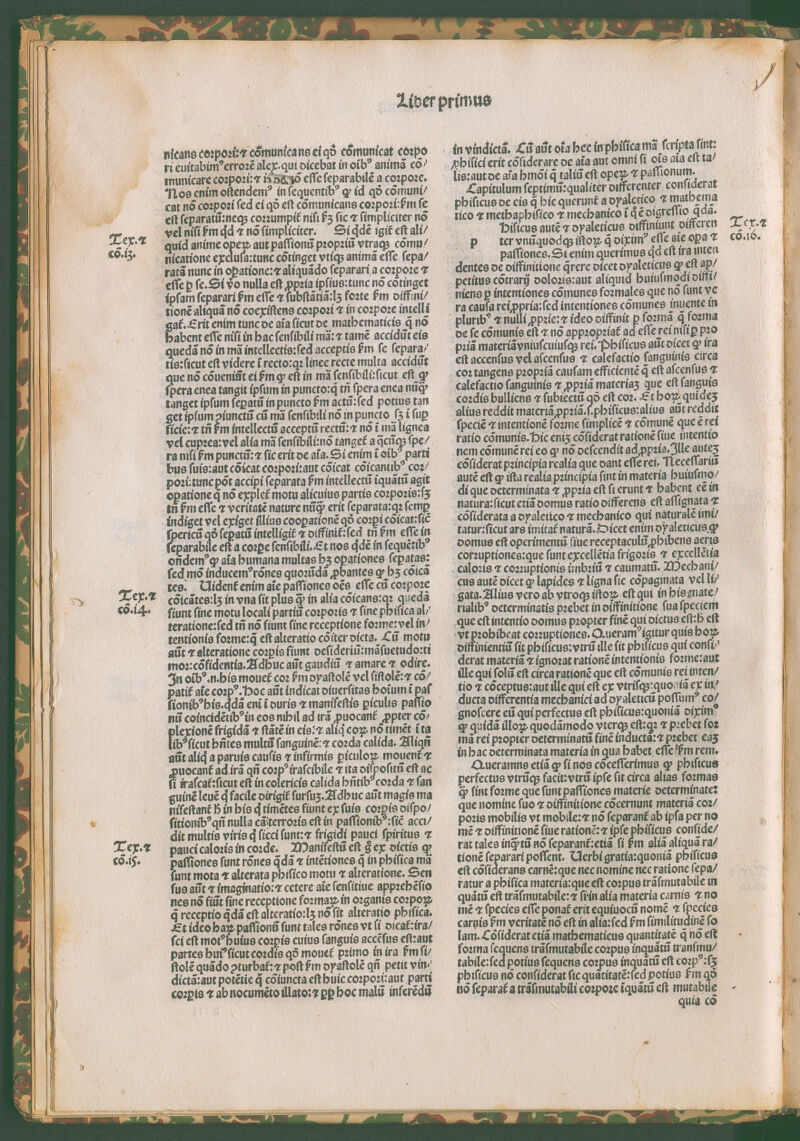 Liber primus
nicans corpori: ⁊ cōmunicans ei qd̄ cōmunicat corpo
ri euitabimꝰ errorē alex. qui dicebat in oībꝰ animā cō⸗
municare corpori: ⁊ esse separabilē a corpore.
Nos enim ostendemꝰ in sequentibꝰ ꝙ id qd̄ cōmuni⸗
cat nō corpori sed ei qd̄ est cōmunicans corpori: ẜm se
est separatū: neqꝫ corrumpit̄ nisi ẜꝫ sic ⁊ simpliciter nō
vel nisi ẜm qd̄ ⁊ nō simpliciter. Si qdē igit̄ est ali⸗
Tex.⁊
cō.13.
quid anime operꝝ aut passionū propriū vtraqꝫ cōmu⸗
nicatione exclusa: tunc cōtinget vtiqꝫ animā esse sepa⸗
ratā nunc in opatione: ⁊ aliquādo separari a corpore ⁊
esse ꝑ se. Si vō nulla est ꝓpria ipsius: tunc nō cōtinget
ipsam separari ẜm esse ⁊ substātiā: lꝫ forte ẜm diffini⸗
tionē aliquā nō coexistens corpori ⁊ in corpore intelli
gat̄. Erit enim tunc de aīa sicut de mathematicis q̄ nō
habent esse nisi in hac sensibili mā: ⁊ tamē accidūt eis
quedā nō in mā intellectis: sed acceptis ẜm se separa⸗
tis: sicut est videre ī recto: qꝛ linee recte multa accidūt
que nō cōueniūt ei ẜm ꝙ est in mā sensibili: sicut est ꝙ
spera enea tangit ipsum in puncto: q̄ tn̄ spera enea nūꝙ̄
tanget ipsum sepatū in puncto ẜm actū: sed potius tan
get ipsum ↄiunctū cū mā sensibili nō in puncto sꝫ ī sup
ficie: ⁊ tn̄ ẜm intellectū acceptū rectū: ⁊ nō ī mā lignea
vel cuprea: vel alia mā sensibili: nō tanget̄ a q̄cūqꝫ spe⸗
ra nisi ẜm punctū: ⁊ sic erit de aīa. Si enim ī oībꝰ parti
bus suis: aut cōicat corpori: aut cōicat cōicantibꝰ cor⸗
pori: tunc pōt accipi separata ẜm intellectū īquātū agit
opatione q̄ nō explet̄ motu alicuius partis corporis: sꝫ
tn̄ ẜm esse ⁊ veritatē nature nūꝙ̄ erit separata: qꝛ semꝑ
indiget vel exiget illius coopationē qd̄ corpi cōicat: sic̄
spericū qd̄ sepatū intelligit̄ ⁊ diffinit̄: sed tn̄ ẜm esse in
separabile est a corpe sensibili. Et nos qdē in sequētibꝰ
on̄demꝰ ꝙ aīa humana multas hꝫ opationes sepatas:
sed mō inducemꝰ rōnes quorūdā ꝓbantes ꝙ hꝫ cōicā
tes. Uident̄ enim aīe passiones oēs esse cū corpore
Tex.⁊
cō.14.
cōicātes: lꝫ in vna sit plus ꝙ̄ in alia cōicans: qꝛ quedā
fiunt sine motu locali partiū corporis ⁊ sine phisica al⸗
teratione: sed tn̄ nō fiunt sine receptione forme: vel in⸗
tentionis forme: q̄ est alteratio cōiter dicta. Cū motu
aūt ⁊ alteratione corpis fiunt desideriū: māsuetudo: ti
mor: cōfidentia. Adhuc aūt gaudiū ⁊ amare ⁊ odire.
In oībꝰ .n. his mouet̄ cor ẜm dyastolē vel sistolē: ⁊ cō⸗
patit̄ aīe corpꝰ. Hoc aūt indicat diuersitas hoīum ī pas
sionibꝰ his. qdā eni ī duris ⁊ manifestis piculis passio
nū coincidētibꝰ in eos nihil ad irā ꝓuocant̄ ꝓpter cō⸗
plexionē frigidā ⁊ stātē in eis: ⁊ aliqd̄ eorꝝ nō timēt ī ta
libꝰ sicut hn̄tes multū sanguinē: ⁊ corda calida. Aliqn̄
aūt aliqͥ a paruis causis ⁊ infirmis piculorꝝ mouent̄ ⁊
ꝓuocant̄ ad irā qn̄ corpꝰ irascibile ⁊ ita dispositū est ac
si irascat̄: sicut est in colericis calida hn̄tibꝰ corda ⁊ san
guinē leuē q̄ facile dirigit̄ sursuꝫ. Adhuc aūt magis ma
nifestant̄ h̄ in his q̄ timētes fiunt ex suis corpis dispo⸗
sitionibꝰ qn̄ nulla cā terroris est in passionibꝰ: sic̄ acci⸗
dit multis viris q̄ sicci sunt: ⁊ frigidi pauci spiritus ⁊
pauci caloris in corde. Manifestū est g̊ ex dictis ꝙ
Tex.⁊
cō.15.
passiones sunt rōnes qdā ⁊ intētiones q̄ in phisica mā
sunt mota ⁊ alterata phisico motu ⁊ alteratione. Sen
sus aūt ⁊ imaginatio: ⁊ cetere aīe sensitiue apprehēsio
nes nō fiūt sine receptione formaꝝ in organis corporꝝ
q̄ receptio qdā est alteratio: lꝫ nō sit alteratio phisica.
Et ideo haꝝ passionū sunt tales rōnes vt si dicat̄: ira⸗
sci est motꝰ huius corpis cuius sanguis accēsus est: aut
partes huiꝰ sicut cordis qd̄ mouet̄ primo in ira ẜm si⸗
stolē quādo ↄturbat̄: ⁊ post ẜm dyastolē qn̄ petit vin⸗
dictā: aut potētie q̄ cōiuncta est huic corpori: aut parti
corpis ⁊ ab nocumēto illato: ⁊ ꝓp̄ hoc malū inferēdū
in vindictā. Cū aūt oīa hec in phisica mā scripta sint:
phisici erit cōsiderare de aīa aut omni si oīs aīa est ta⸗
lis: aut de aīa hmōi q̄ taliū est operꝝ ⁊ passionum.
Capitulum septimū: qualiter differenter considerat
phisicus de eis q̄ hic querunt̄ a dyaletico ⁊ mathema
tico ⁊ methaphisico ⁊ mechanico ī q̄ ē digressio qdā.
p Hisicus autē ⁊ dyaleticus diffiniunt differen
Tex.⁊
cō.16.
ter vnūquodqꝫ istorꝝ q̄ diximꝰ esse aīe opa ⁊
passiones. Si enim querimus qd̄ est ira inten
dentes de diffinitione q̄rere dicet dyaleticus ꝙ est ap⸗
petitus cōtrarij doloris: aut aliquid huiusmodi diffi⸗
niens ꝑ intentiones cōmunes formales que nō sunt ve
ra causa rei ꝓpria: sed intentiones cōmunes inuente in
pluribꝰ ⁊ nulli ꝓprie: ⁊ ideo diffinit ꝑ formā q̄ forma
de se cōmunis est ⁊ nō appropriat̄ ad esse rei nisi ꝑ pro
priā materiā vniuscuiusqꝫ rei. Phisicus aūt dicet ꝙ ira
est accensus vel ascensus ⁊ calefactio sanguinis circa
cor tangens propriā causam efficientē q̄ est ascensus ⁊
calefactio sanguinis ⁊ ꝓpriā materiaꝫ que est sanguis
cordis bulliens ⁊ subiectū qd̄ est cor. Et horꝝ quideꝫ
alius reddit materiā ꝓpriā .s. phisicus: alius aūt reddit
speciē ⁊ intentionē forme simplicē ⁊ cōmunē que ē rei
ratio cōmunis. Hic eniꝫ cōsiderat rationē siue intentio
nem cōmunē rei eo ꝙ nō descendit ad ꝓpria. Ille auteꝫ
cōsiderat principia realia que dant esse rei. Necessariū
autē est ꝙ ista realia principia sint in materia huiusmo⸗
di que determinata ⁊ ꝓpria est si erunt ⁊ habent eē in
natura: sicut etiā domus ratio differens est assignata ⁊
cōsiderata a dyaletico ⁊ mechanico qui naturalē imi⸗
tatur: sicut ars imitat̄ naturā. Dicet enim dyaleticus ꝙ
domus est operimentū siue receptaculū ꝓhibens aeris
corruptiones: que sunt excellētia frigoris ⁊ excellētia
caloris ⁊ corruptionis imbriū ⁊ caumatū. Mechani⸗
cus autē dicet ꝙ lapides ⁊ ligna sic cōpaginata vel li⸗
gata. Alius vero ab vtroqꝫ istorꝝ est qui in his mate⸗
rialibꝰ determinatis prebet in diffinitione sua speciem
que est intentio domus propter finē qui dictus est: h̄ est
vt prohibeat corruptiones. Queramꝰ igitur quis horꝝ
diffinientiū sit phisicus: vtrū ille sit phisicus qui consi⸗
derat materiā ⁊ ignorat rationē intentionis forme: aut
ille qui solū est circa rationē que est cōmunis rei inten⸗
tio ⁊ cōceptus: aut ille qui est ex vtrisqꝫ: quoniā ex in⸗
ducta differentia mechanici ad dyaleticū possumꝰ co⸗
gnoscere cū qui perfectus est phisicus: quoniā diximꝰ
ꝙ quidā illorꝝ quodāmodo vterqꝫ est: qꝛ ⁊ prebet for
mā rei propter determinatū finē inductā: ⁊ prebet eaꝫ
in hac determinata materia in qua habet esse ẜm rem.
Queramus etiā ꝙ si nos cōcesserimus ꝙ phisicus
perfectus vtrūqꝫ facit: vtrū ipse sit circa alias formas
q̄ sint forme que sunt passiones materie determinate:
que nomine suo ⁊ diffinitione cōcernunt materiā cor⸗
poris mobilis vt mobile: ⁊ nō separant̄ ab ipsa per no
mē ⁊ diffinitionē siue rationē: ⁊ ipse phisicus conside⸗
rat tales inq̄tū nō separant̄: etiā si ẜm aliā aliquā ra⸗
tionē separari possent. Uerbi gratia: quoniā phisicus
est cōsiderans carnē: que nec nomine nec ratione sepa⸗
ratur a phisica materia: que est corpus trāsmutabile in
quātū est trāsmutabile: ⁊ si in alia materia carnis ⁊ no
mē ⁊ species esse ponat̄ erit equiuocū nomē ⁊ species
carnis ẜm veritatē nō est in alia: sed ẜm similitudinē so
lam. Cōsiderat etiā mathematicus quantitatē q̄ nō est
forma sequens trāsmutabile corpus inquātū transmu⸗
tabile: sed potius sequens corpus inquātū est corpꝰ: sꝫ
phisicus nō considerat sic quātitatē: sed potius ẜm qd̄
nō separat̄ a trāsmutabili corpore īquātū est mutabile
quia cō